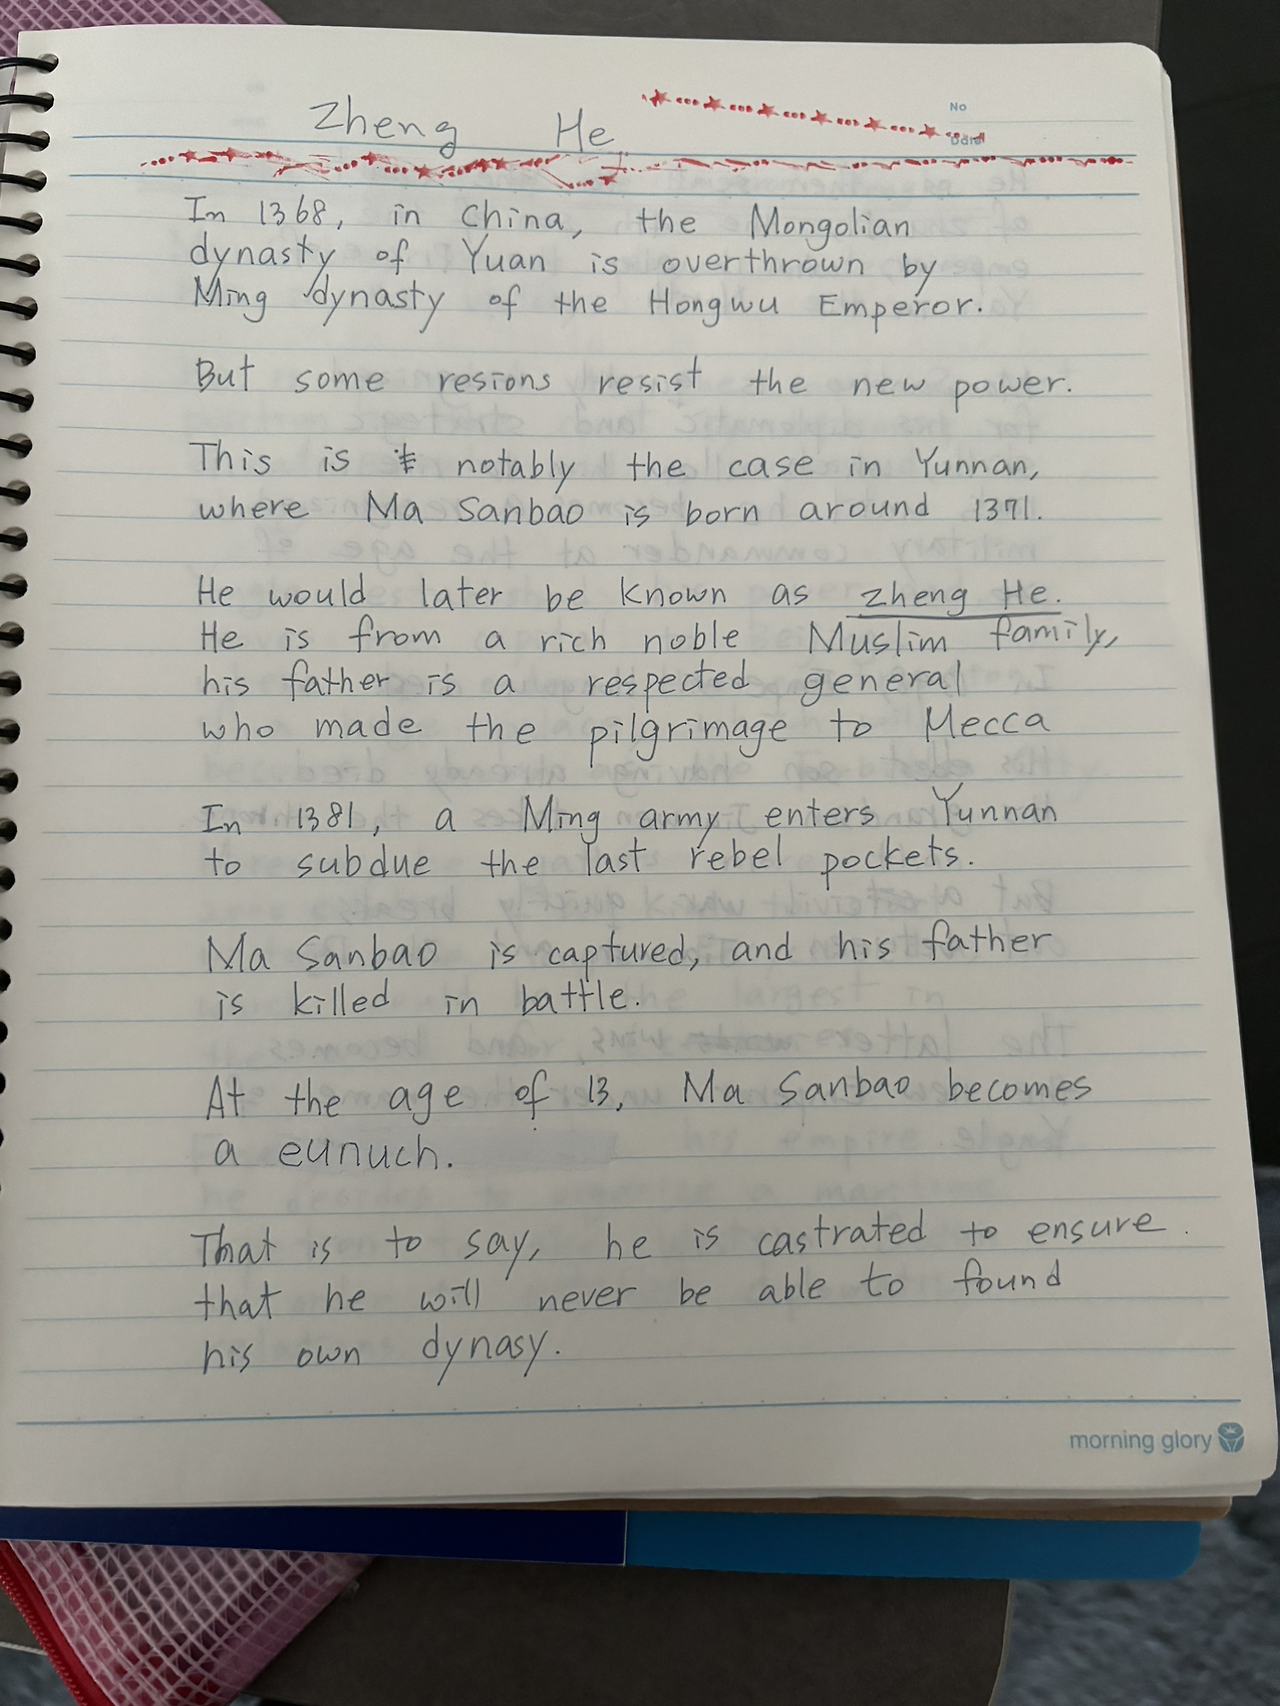 Zheng He
No
Date
In 1368, in China, the Mongolian
dynasty of Yuan is overthrown by
Ming dynasty of the Hongwu Emperor.
But some resions resist the new power.
This is notably the case in Yunnan,
where Ma Sanbao is born around 1371.
He would later be known as Zheng He.
He is from a rich noble Muslim family,
his father is a respected general
who made the pilgrimage to Mecca
In 1381, a Ming army enters Yunnan
to subdue the last rebel pockets.
Ma Sanbao is captured, and his father
is killed in battle.
At the age of 13, Ma Sanbao becomes
a eunuch.
That is to say, he is castrated to ensure
that he will never be able to found
his own dynasy.
morning glory